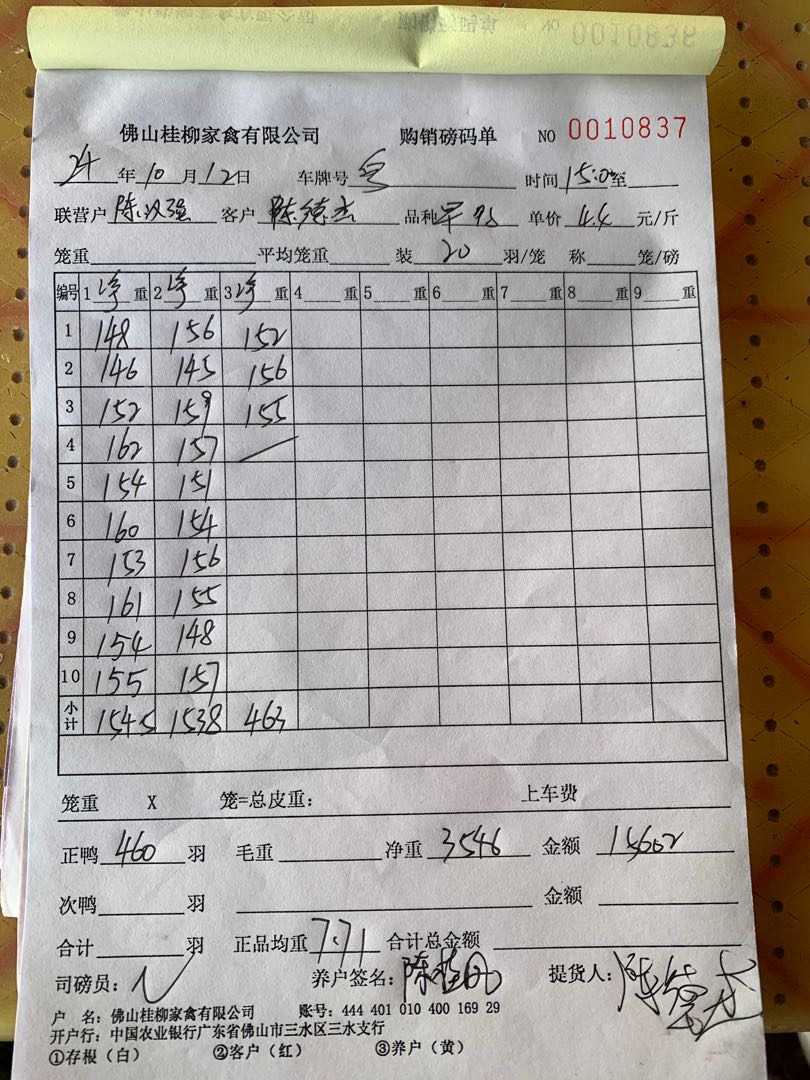 佛山桂柳家禽有限公司 购销磅码单 NO 0010837
24年10月12日 车牌号 时间15:00至
联营户 陈汉强 客户 陈德杰 品种 单价 4.4 元/斤
笼重 平均笼重 装 20 羽/笼 称 笼/磅
编号 1 净 重 2 净 重 3 净 重 4 重 5 重 6 重 7 重 8 重 9 重
1 148 156 152
2 146 145 156
3 152 159 155
4 162 157
5 154 151
6 160 154
7 153 156
8 161 155
9 154 148
10 155 157
小计 1545 1538 463
笼重 X 笼=总皮重: 上车费
正鸭 460 羽 毛重 净重 3546 金额 15602
次鸭 羽 金额
合计 羽 正品均重 7.71 合计总金额
司磅员: 养户签名: 提货人: 陈德杰
户 名: 佛山桂柳家禽有限公司 账号: 444 401 010 400 169 29
开户行: 中国农业银行广东省佛山市三水区三水支行
①存根(白) ②客户(红) ③养户(黄)